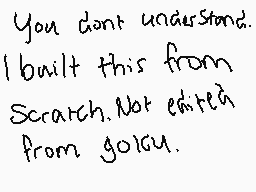 You dont understand.
I built this from
scratch. Not edited
from goku.